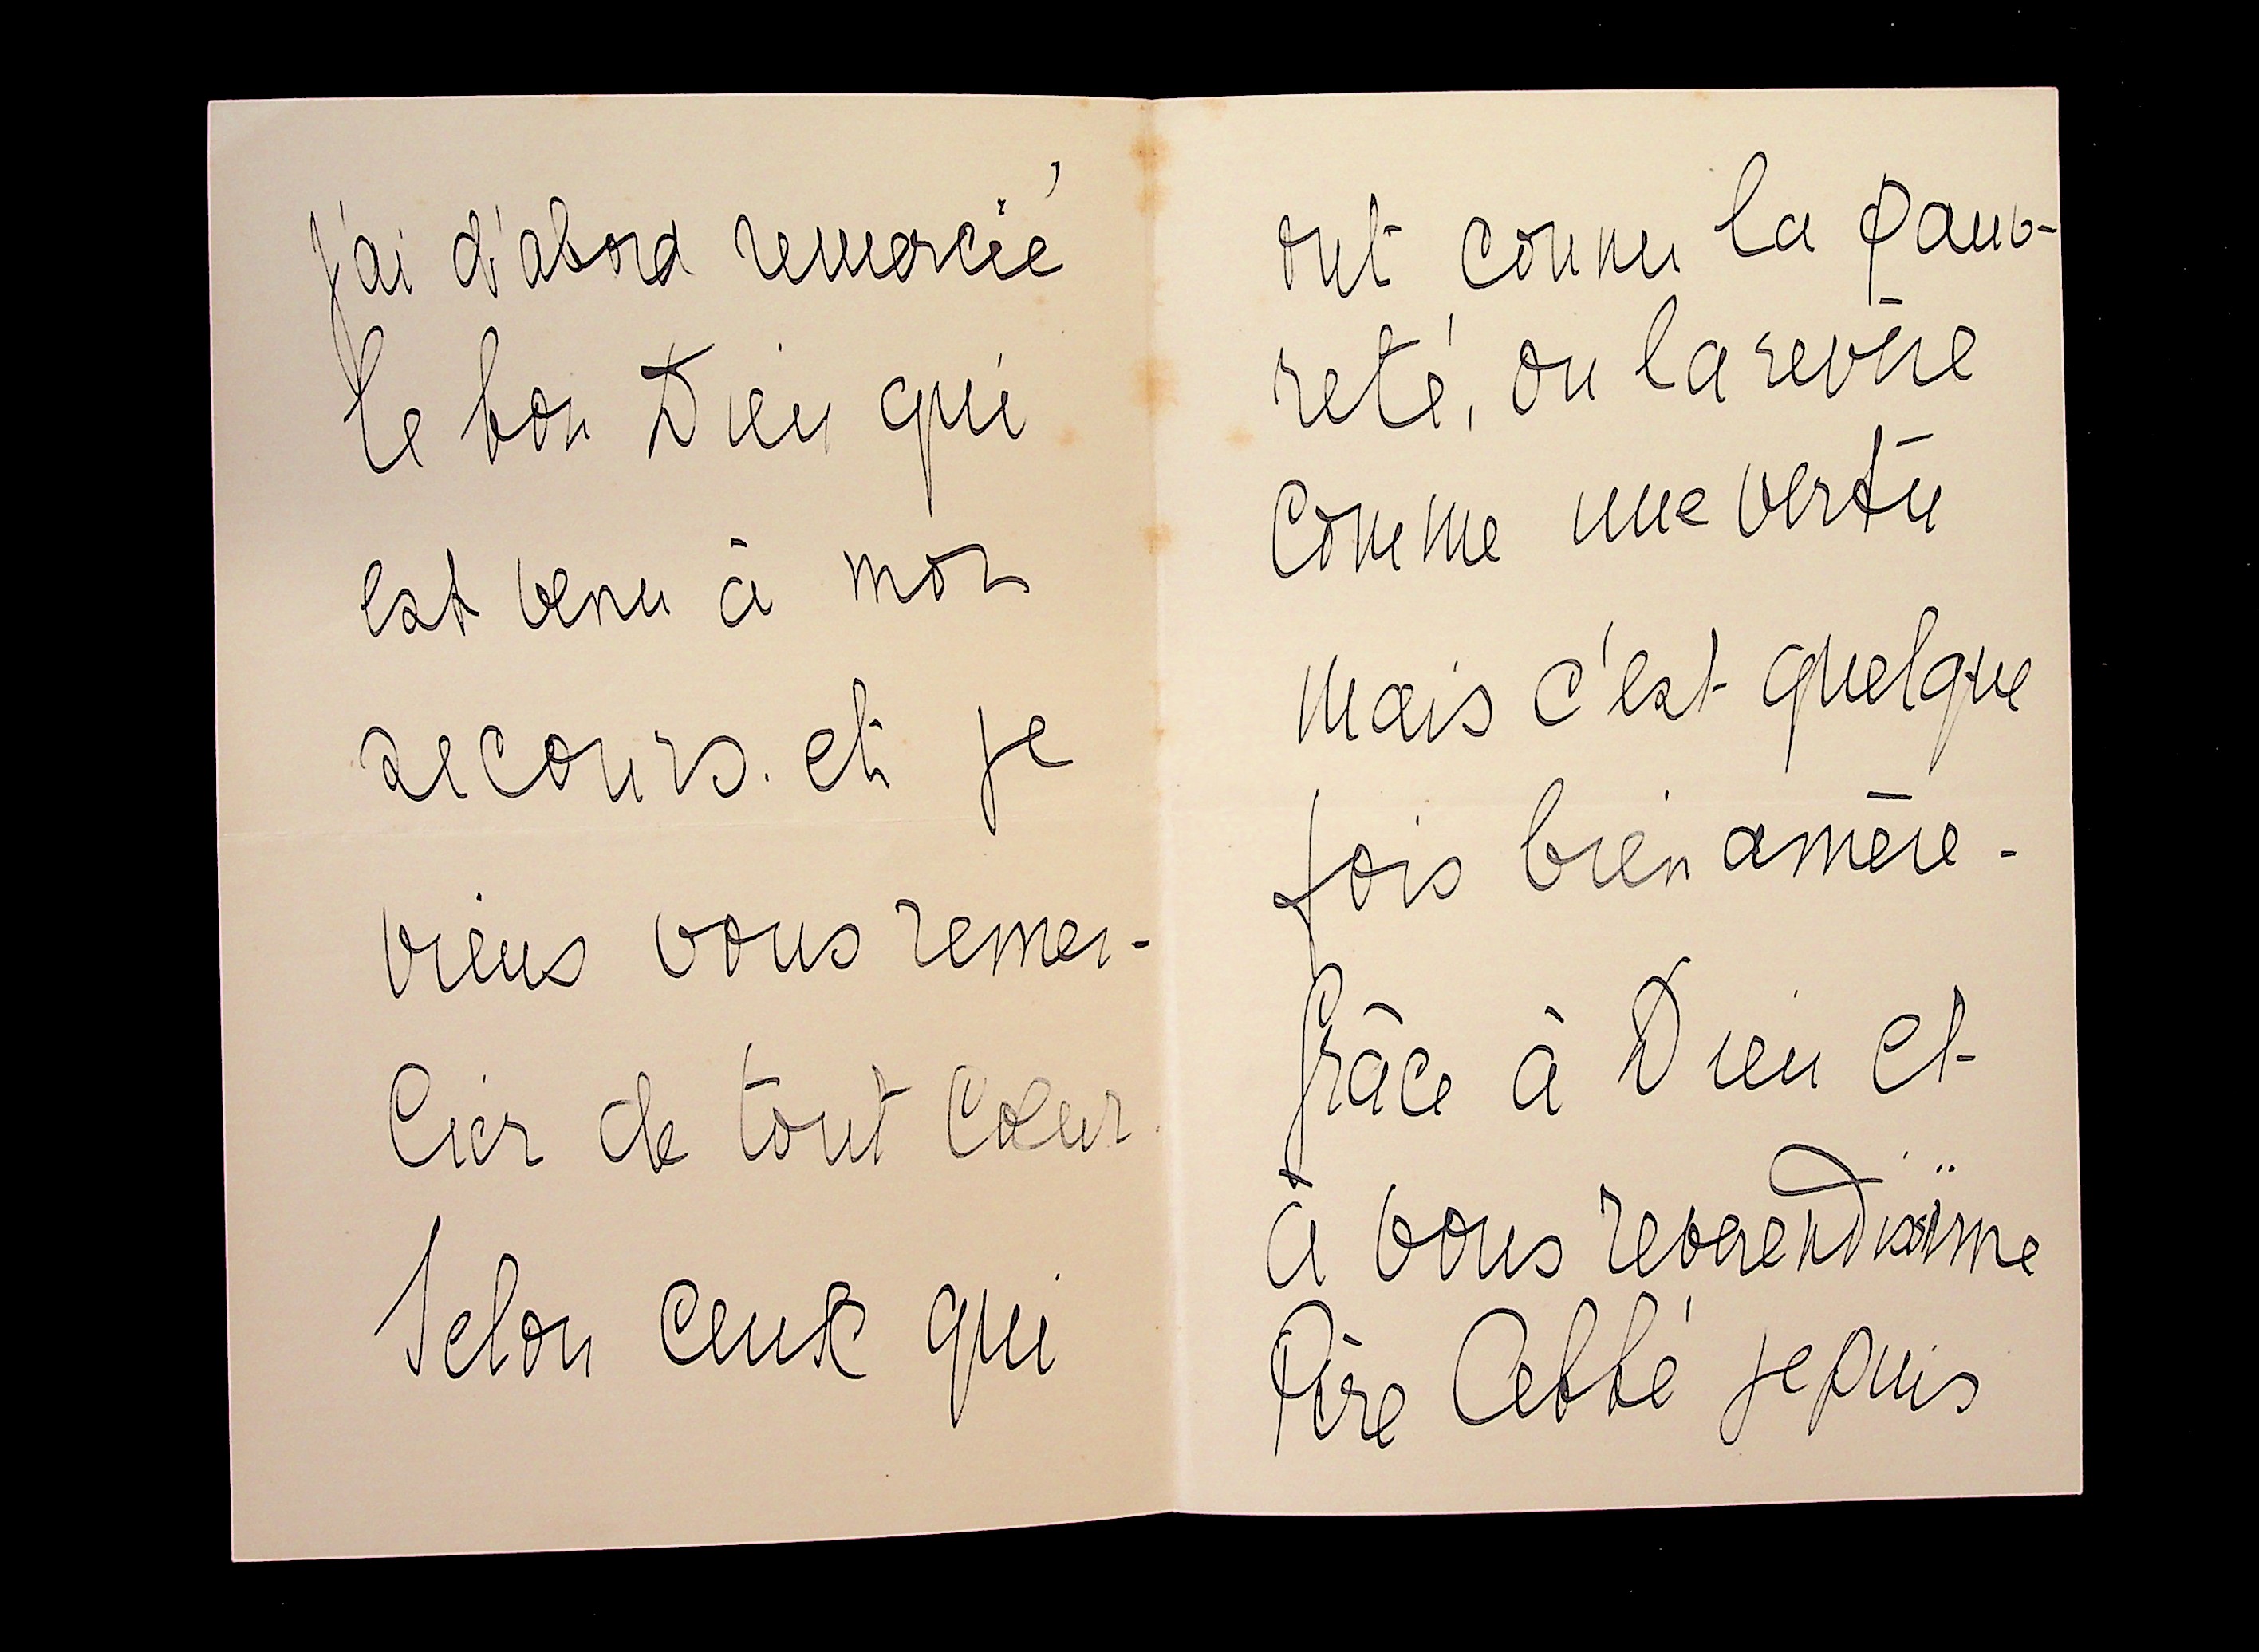 j'ai d'abord remercié
le bon Dieu qui
est venu à mon
secours. et je
viens vous remer-
cier de tout coeur.
Selon ceux qui
ont connu la pauv-
reté, on la revère
comme une vertu
mais c'est quelque
fois bien amère -
Grâce à Dieu et
à vous reverendissime
Père Abbé je puis